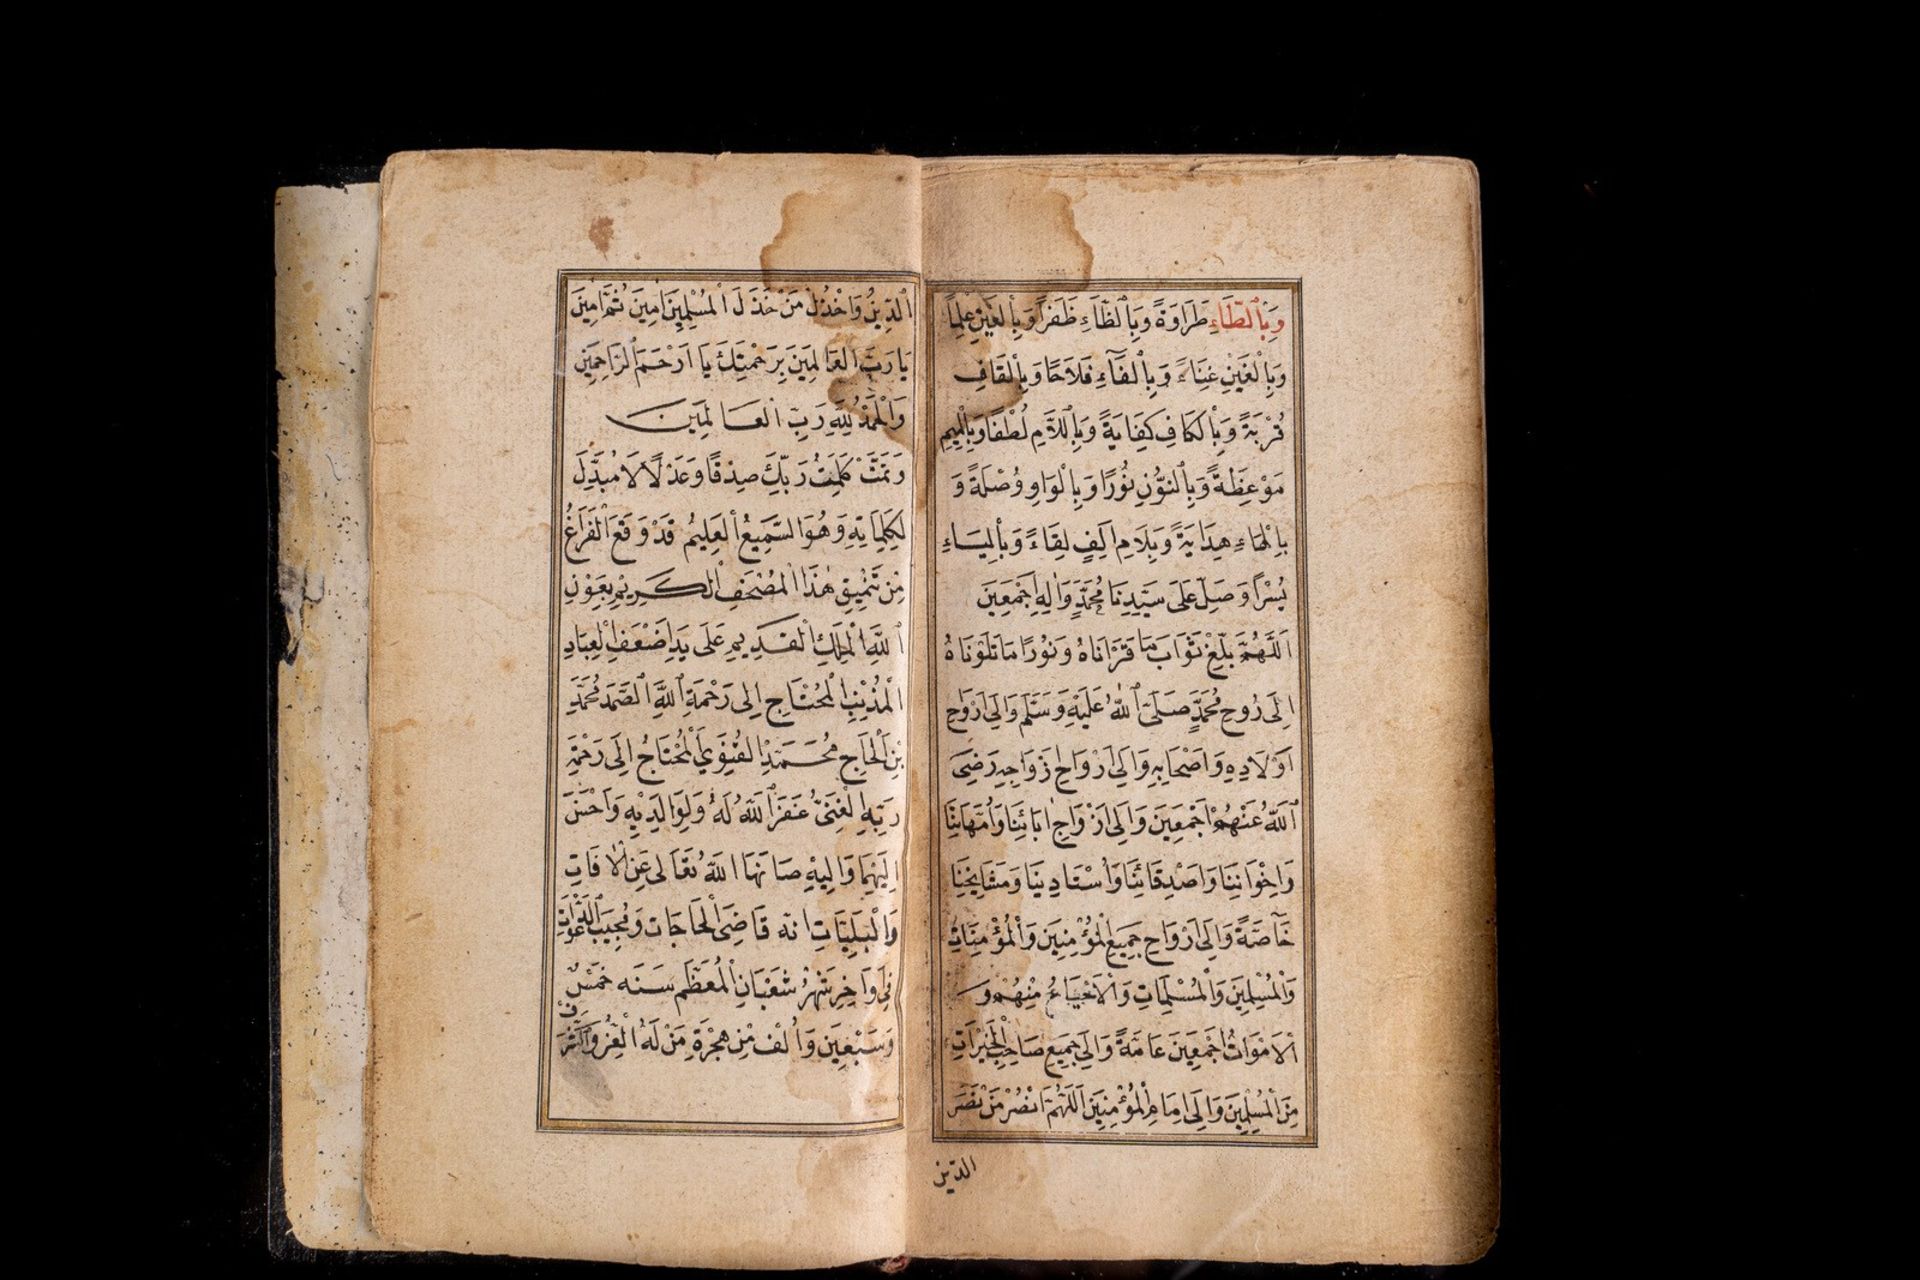 وَبِالطَّاءِ طَرَاوَةً وَبِالظَّاءِ ظَفَرًا وَبِالْعَيْنِ عِلْمًا
وَبِالْغَيْنِ غِنَاءً وَبِالْفَآءِ فَلَاحًا وَبِالْقَافِ
قُرْبَةً وَبِالْكَافِ كِفَايَةً وَبِاللَّامِ لُطْفًا وَبِالْمِيمِ
مَوْعِظَةً وَبِالنُّونِ نُورًا وَبِالْوَاوِ وُصْلَةً وَ
بِالْهَاءِ هِدَايَةً وَبِلَامِ اَلِفٍ لِقَاءً وَبِالْيَاءِ
يُسْرًا وَصَلِّ عَلَى سَيِّدِنَا مُحَمَّدٍ وَاٰلِهِ اَجْمَعِينَ
اَللَّهُمَّ بَلِّغْ ثَوَابَ مَا قَرَاْنَاهُ وَنُورًا مَا تَلَوْنَاهُ
اِلَى رُوحِ مُحَمَّدٍ صَلَّى اللّٰهُ عَلَيْهِ وَسَلَّمَ وَاِلَى اَرْوَاحِ
اَوْلَادِهِ وَاَصْحَابِهِ وَاِلَى اَرْوَاحِ اَزْوَاجِهِ رَضِىَ
اللَّهُ عَنْهُمْ اَجْمَعِينَ وَاِلَى اَرْوَاحِ اٰبَائِنَا وَاُمَّهَاتِنَا
وَاِخْوَانِنَا وَاَصْدِقَائِنَا وَاُسْتَادِينَا وَمَشَايِخِنَا
خَآصَّةً وَاِلَى اَرْوَاحِ جَمِيعِ الْمُؤْمِنِينَ وَالْمُؤْمِنَاتِ
وَالْمُسْلِمِينَ وَالْمُسْلِمَاتِ وَالْاَحْيَاءُ مِنْهُمْ وَ
الْاَمْوَاتُ اَجْمَعِينَ عَامَّةً وَاِلَى جَمِيعِ صَاحِبِ الْخَيْرَاتِ
مِنَ الْمُسْلِمِينَ وَاِلَى اِمَامِ الْمُؤْمِنِينَ اَللَّهُمَّ انْصُرْ مَنْ نَصَرَ
الدّين
الدِّينَ وَاخْذُلْ مَنْ خَذَلَ الْمُسْلِمِينَ اٰمِينَ ثُمَّ اٰمِينَ
يَا رَبَّ الْعَالَمِينَ بِرَحْمَتِكَ يَا اَرْحَمَ الرَّاحِمِينَ
وَالْحَمْدُ لِلَّهِ رَبِّ الْعَالَمِينَ
وَتَمَّتْ كَلِمَتُ رَبِّكَ صِدْقًا وَعَدْلًا لَا مُبَدِّلَ
لِكَلِمَاتِهِ وَهُوَ السَّمِيعُ الْعَلِيمُ قَدْ وَقَعَ الْفَرَاغُ
مِنْ تَنْمِيقِ هٰذَا الْمُصْحَفِ الْكَرِيْمِ بِعَوْنِ
اللَّهِ الْمَلِكِ الْقَدِيمِ عَلَى يَدِ اَضْعَفِ الْعِبَادِ
الْمُذْنِبِ الْمُحْتَاجِ اِلَى رَحْمَةِ اللَّهِ الصَّمَدِ مُحَمَّدِ
بْنِ الْحَاجِّ مُحَمَّدِ الْقُنَوِيِّ الْمُحْتَاجُ اِلَى رَحْمَةِ
رَبِّهِ الْغَنِىِّ غَفَرَ اللَّهُ لَهُ وَلِوَالِدَيْهِ وَاَحْسَنَ
اِلَيْهِمَا وَاِلَيْهِ صَانَهَا اللَّهُ تَعَالَى عَنِ الْاٰفَاتِ
وَالْبَلِيَّاتِ انه قَاضِىَ الْحَاجَاتِ وَمُجِيبَ الدَّعَوَاتِ
فِى اَوَاخِرِ شَهْرِ شَعْبَانِ الْمُعَظَّمِ سَنَه خَمْسٌ
وَسَبْعِينَ وَاَلْف مِنْ هِجْرَةِ مَنْ لَهُ الْعِزُّ وَالشَّرَف